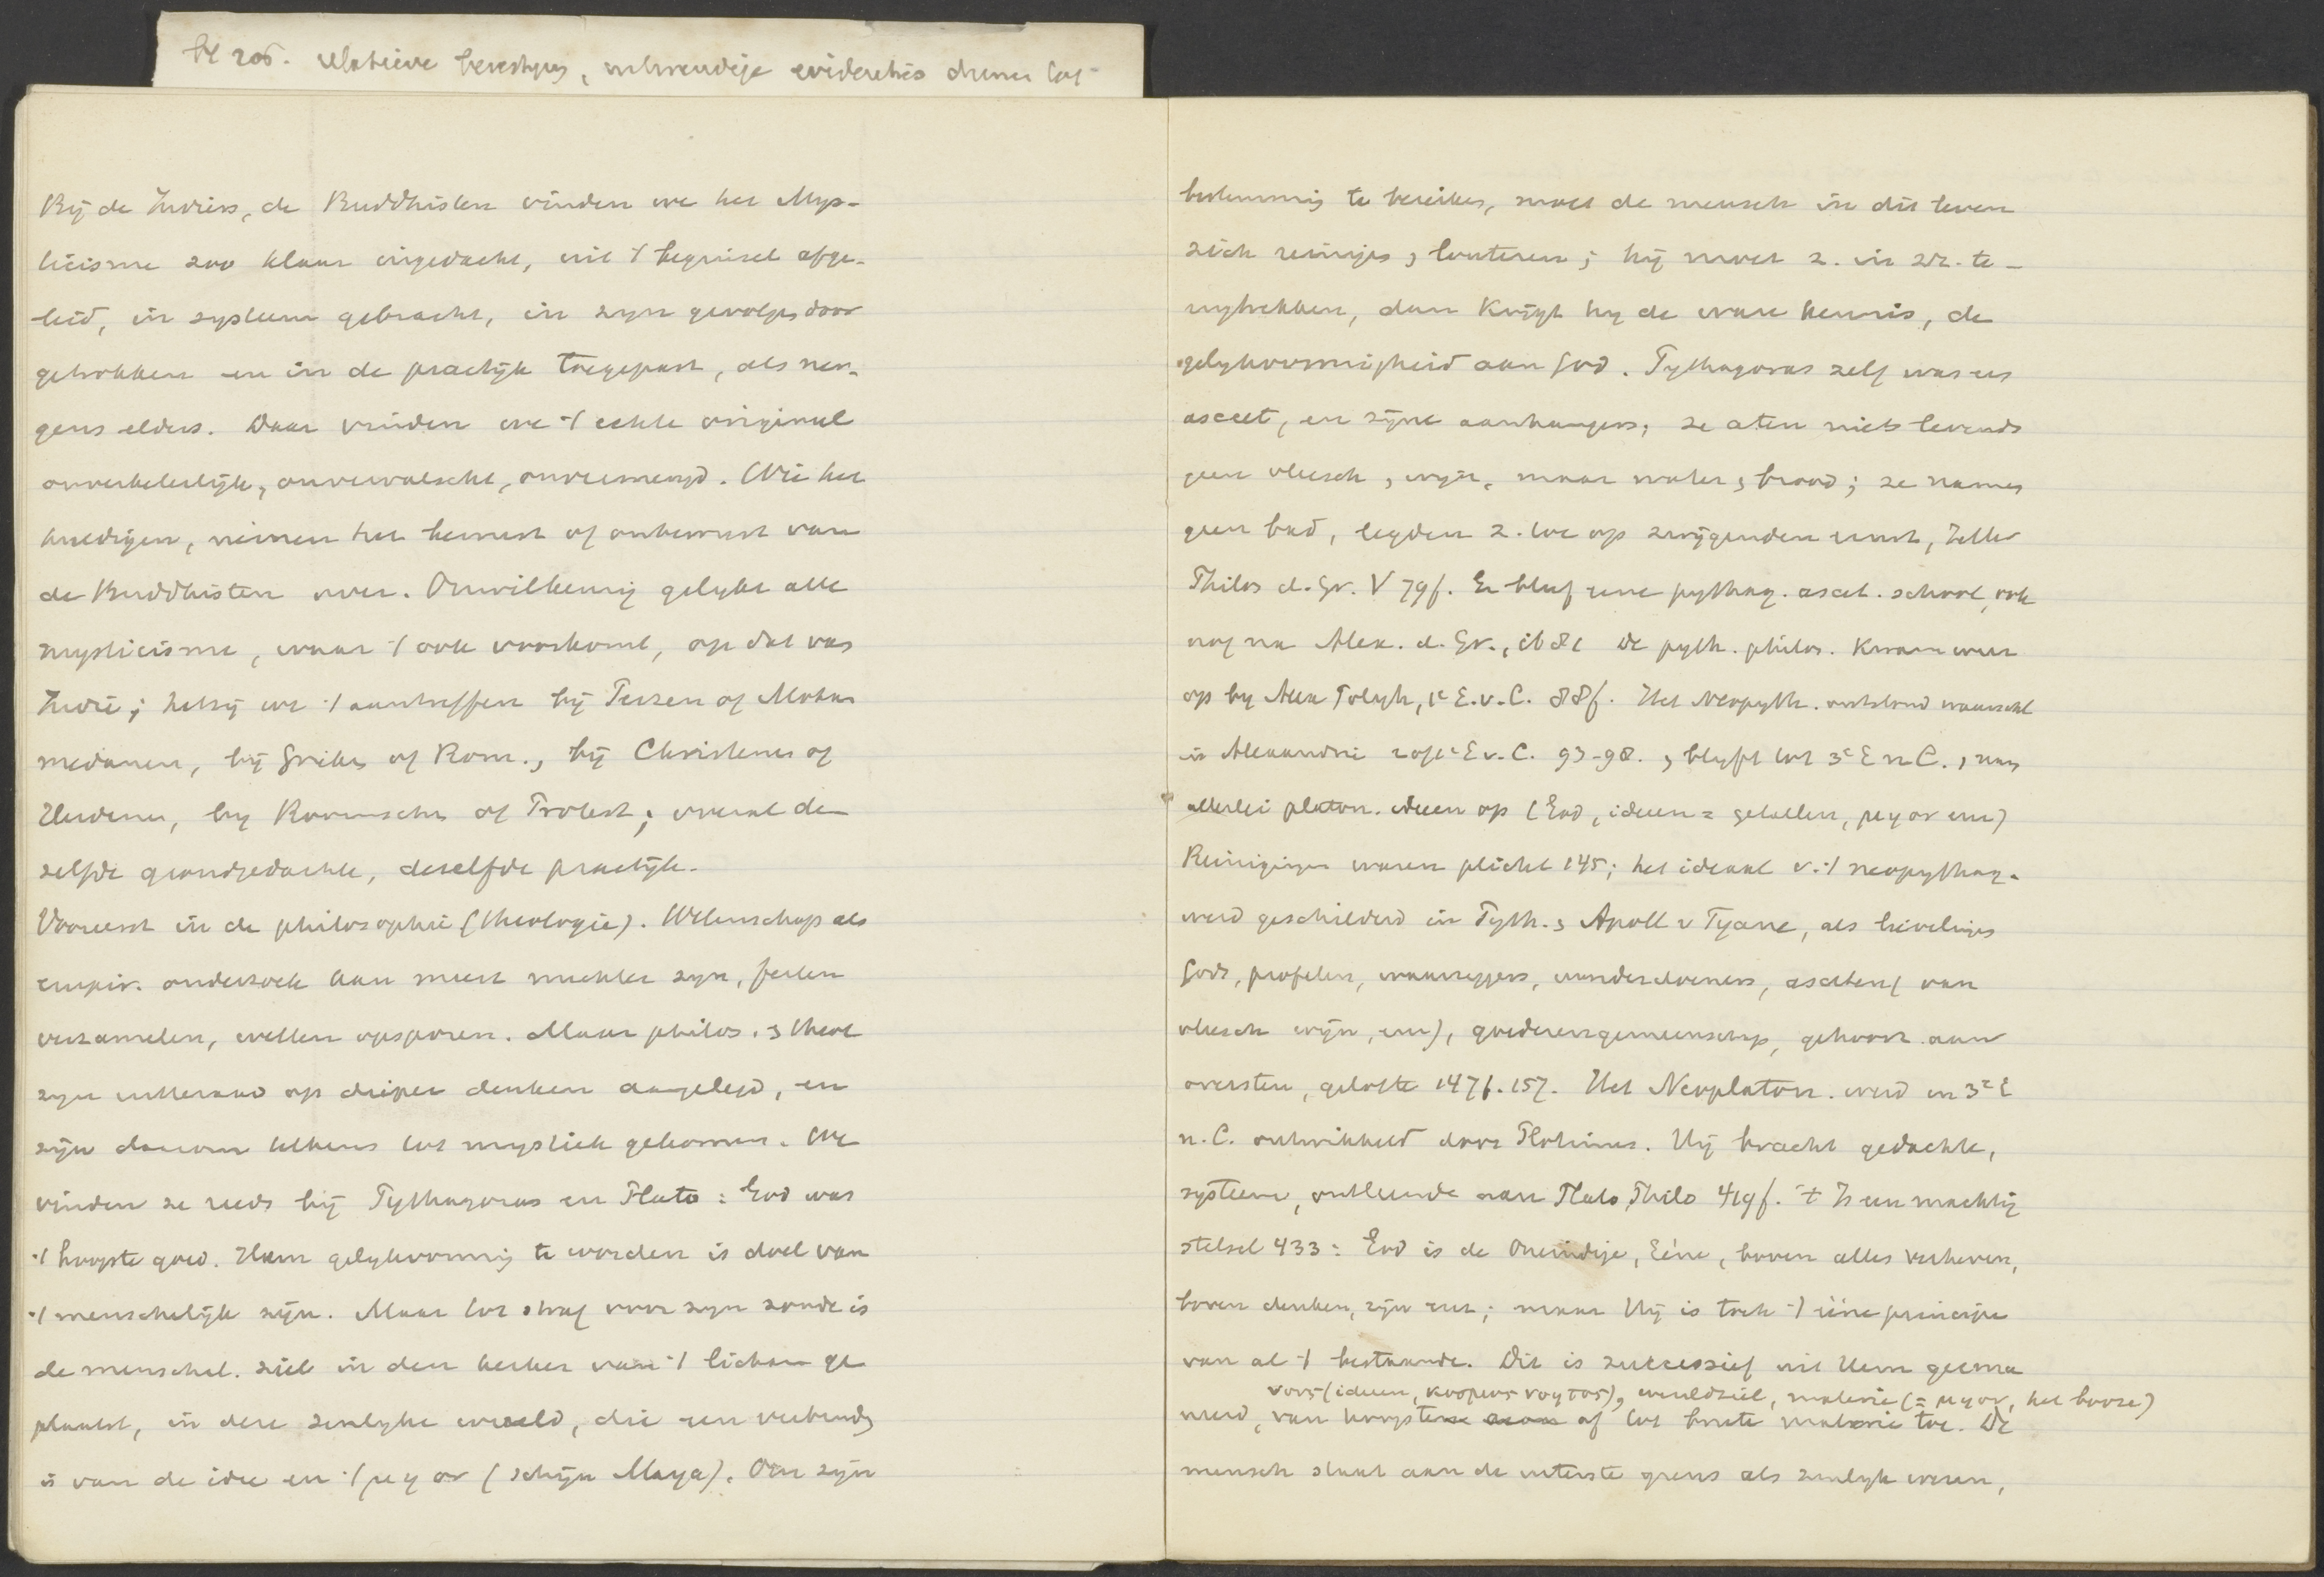 bl 205. relatieve
Bij de Indiërs, de Buddhisten vinden we het Mys-
ticisme zoo klaar ingedacht, uit 't beginsel afge-
leid, in systeem gebracht, in zijn gevolgen door
getrokken en in de practijk toegepast, als ner-
gens elders. Daar vinden we 't echte origineel
onverbeterlijk, onvervalscht, onvermengd. Wie het
huldigen, nemen het bewust of onbewust van
de Buddhisten over. Onwillekeurig gelijkt alle
mysticisme, waar 't ook voorkomt, op dat van
Indië; hetzij we 't aantreffen bij Perzen of Moham
medanen, bij Grieken of Rom., bij Christenen of
Heidenen, bij Roomschen of Protest; overal de
zelfde grondgedachte, dezelfde practijk.
Vooreerst in de philosophie (theologie). Wetenschap als
empir. onderzoek kan meer nuchter zijn, feiten
verzamelen, wetten opsporen. Maar philos. & theol
zijn uiteraard op dieper denken aangelegd, en
zijn daarom telkens tot mystiek gekomen. We
vinden ze reeds bij Pythagoras en Plato: God was
't hoogste goed. Hem gelijkvormig te worden is doel van
't menschelijk zijn. Maar tot straf voor zijn zonde is
de menschel. ziel in den kerker van 't lichaam ge
plaatst, in deze zienlijke wereld, die een verbinding
is van de idee en 't μη ον (schijn Maya). Om zijn
bestemming te bereiken, moet de mensch in dit leven
zich reinigen & louteren; hij moet z. in zich te-
rugtrekken, dan krijgt hij de ware kennis, de
gelijkvormigheid aan God. Pythagoras zelf was een
asceet, en zijne aanhangers; ze aten niets levends
geen vleesch, wijn, maar water & brood; ze namen
geen bad, legden z. toe op zwijgenden ernst, Zeller
Philos d. Gr. V 79f. Er bleef eene pythag. ascet. school, ook
nog na Alex. d. Gr., ib 81 De pyth. philos. kwam weer
op bij Alex Polyh, 1e E.v.C. 88f. Het Neopyth. ontstond waarschl
in Alexandrië 2 of 1e E v. C. 93-98. & blijft tot 3e E n C., nam
allerlei platon. ideen op (God, ideen = getallen, μη ον enz)
Reinigingen waren plicht 145; het ideaal v. 't neopythag.
werd geschilderd in Pyth. & Apoll v Tyana, als lievelingen
Gods, profeten, waarzeggers, wonderdoeners, asceten (van
vleesch wijn, enz), goederengemeenschap, gehoorz. aan
oversten, gelofte 147f. 157. Het Neoplaton. werd in 3e E
n. C. ontwikkeld door Plotinus. Hij bracht gedachte,
systeem, ontleende aan Plato, Philo 419f. 't Is een machtig
stelsel 433: God is de Oneindige, Eéne, boven alles verheven,
boven denken, zijn enz; maar Hij is toch 't ééne principe
van al 't bestaande. Dit is successief uit Hem geema
νους (ideen, κοσμος νοητος), wereldziel, materie (= μη ον, het booze)
neerd, van hoogste af tot bruto materie toe. De
mensch staat aan de uiterste grens als zienlijk wezen,